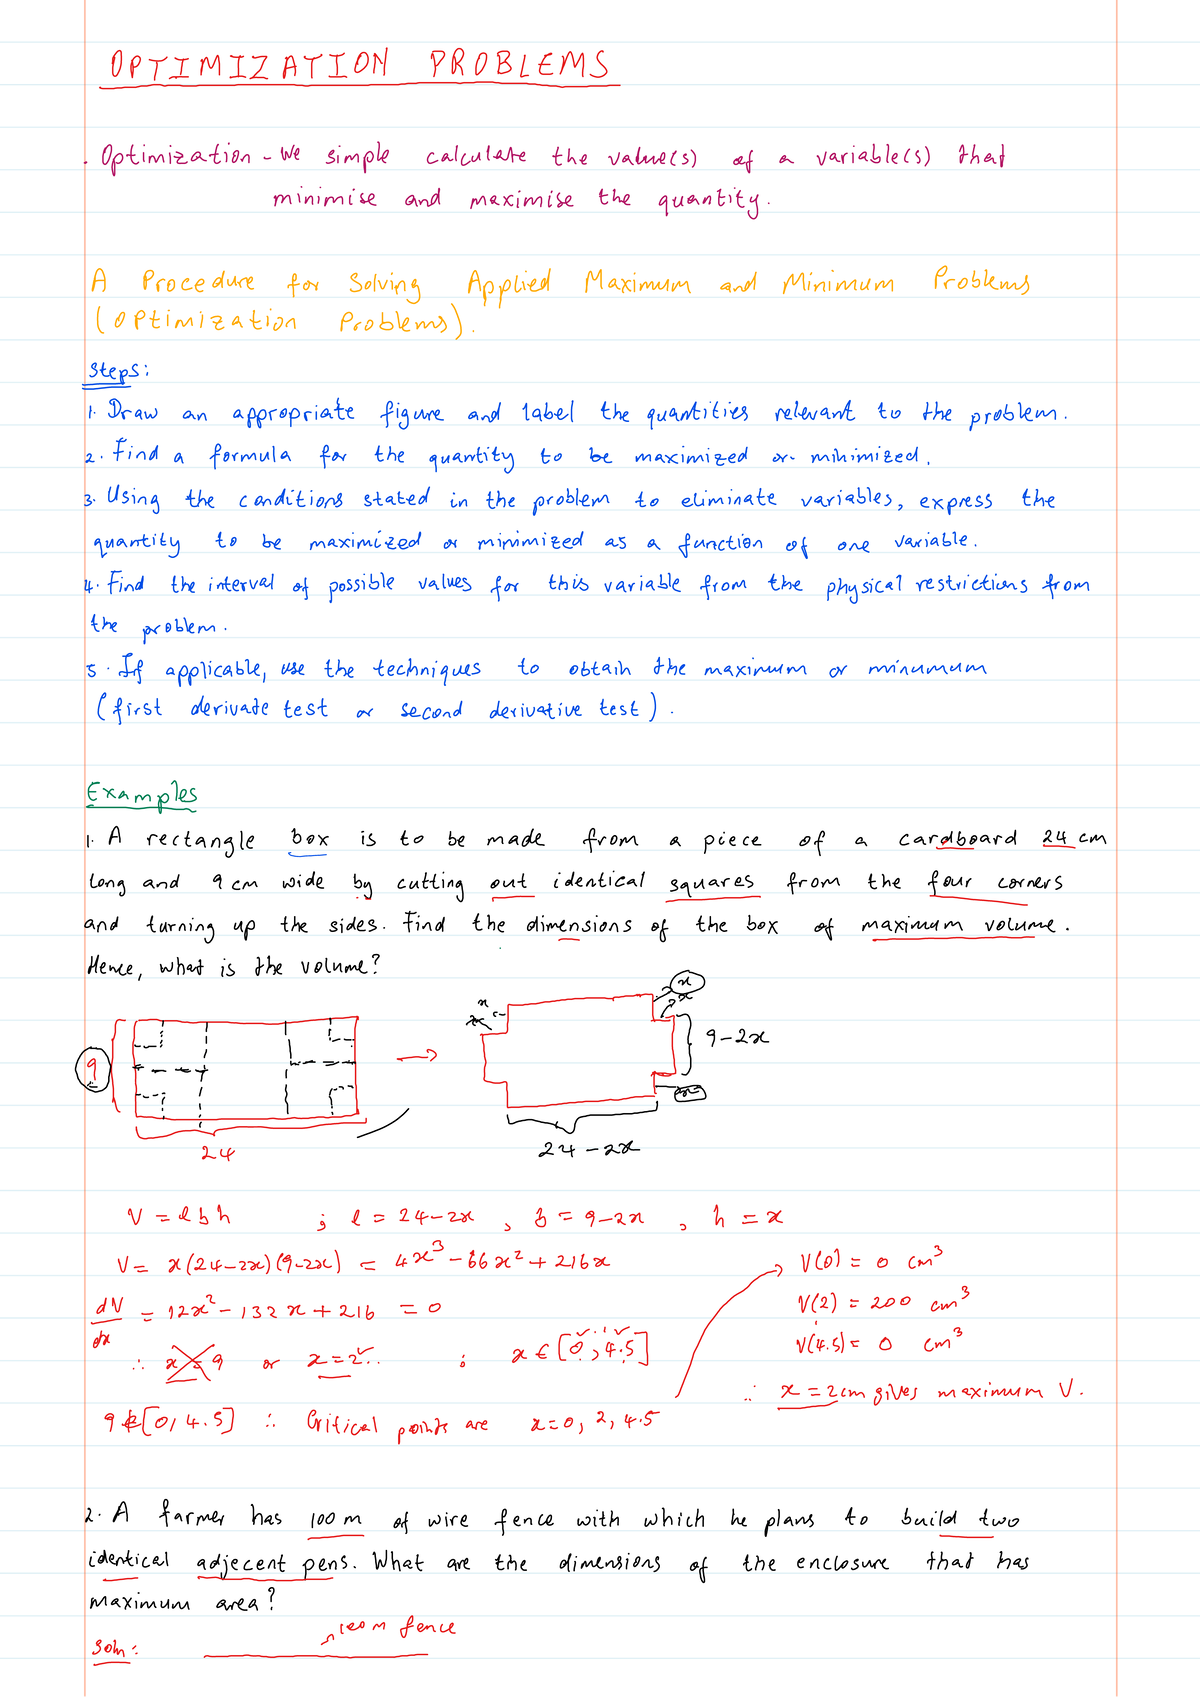 OPTIMIZATION PROBLEMS
. Optimization - We simple calculate the value(s) of a variable(s) that
minimise and maximise the quantity.
A Procedure for Solving Applied Maximum and Minimum Problems
(Optimization Problems).
Steps:
1. Draw an appropriate figure and label the quantities relevant to the problem.
2. Find a formula for the quantity to be maximized or minimized.
3. Using the conditions stated in the problem to eliminate variables, express the
quantity to be maximized or minimized as a function of one variable.
4. Find the interval of possible values for this variable from the physical restrictions from
the problem.
5. If applicable, use the techniques to obtain the maximum or minumum
(first derivate test or second derivative test).
Examples
1. A rectangle box is to be made from a piece of a cardboard 24 cm
long and 9 cm wide by cutting out identical squares from the four corners
and turning up the sides. Find the dimensions of the box of maximum volume.
Hence, what is the volume?
x
x x
9 9-2x
24 24-2x
V = lbh ; l = 24-2x , b = 9-2x , h = x
V = x(24-2x)(9-2x) = 4x³ - 66x² + 216x
V(0) = 0 cm³
dV/dx = 12x² - 132x + 216 = 0
V(2) = 200 cm³
∴ x=9 or x=2 ; x ∈ [0,4.5]
V(4.5) = 0 cm³
∴ x = 2cm gives maximum V.
9 ∉ [0,4.5] ∴ Critical points are x=0, 2, 4.5
2. A farmer has 100 m of wire fence with which he plans to build two
identical adjecent pens. What are the dimensions of the enclosure that has
maximum area?
100 m fence
Soln: